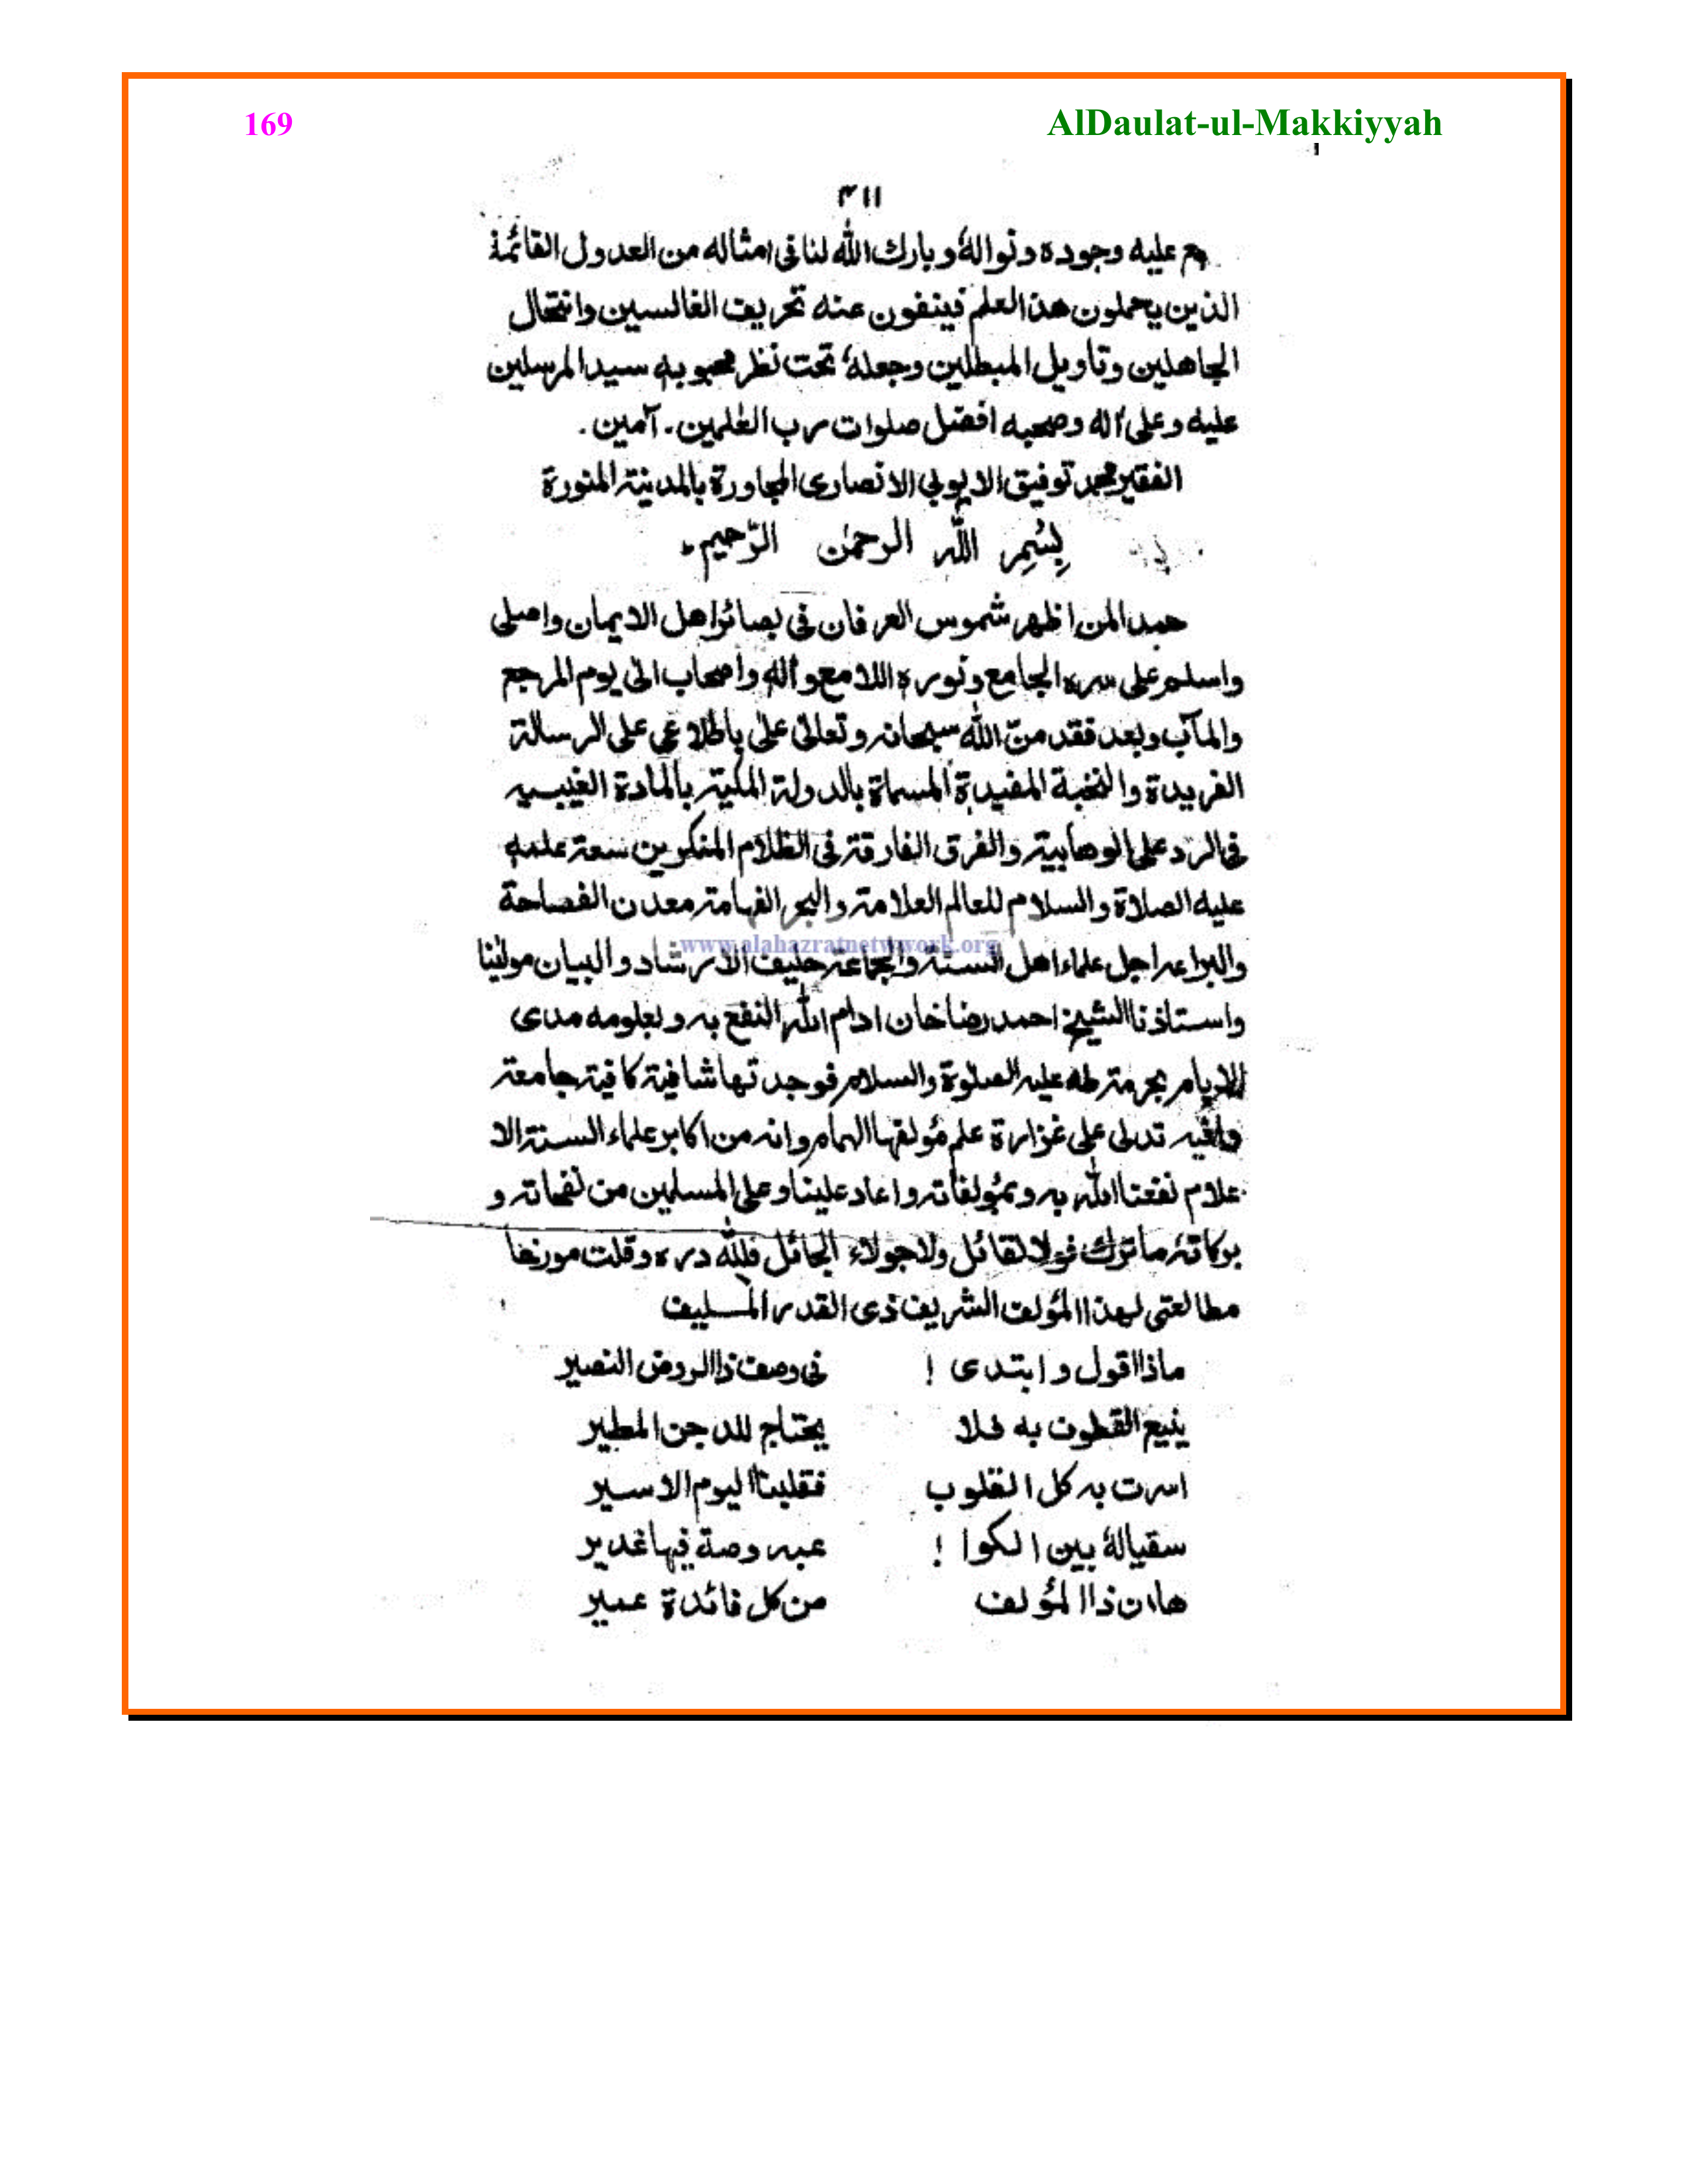 169
AlDaulat-ul-Makkiyyah
٣١١
عليه وجوده ونواله وبارك الله لنا فى امثاله من العدول القائمة
الذين يحملون هذا العلم فينفون عنه تحريف الغالسين وانتحال
الجاهلين وتاويل المبطلين وجعله تحت نظر محبوبه سيد المرسلين
عليه وعلى اٰله وصحبه افضل صلوات رب العٰلمين. آمين.
الفقير محمد توفيق الايوبي الانصارى المجاورة بالمدينة المنورة
بِسْمِ اللّٰه الرحمٰن الرّحيم
حمدا لمن اظهر شموس العرفان فى بصائر اهل الايمان واصلى
واسلم على سره الجامع ونوره اللامع واٰله واصحاب الىٰ يوم المرجع
والمآب وبعد فقد منّ اللّٰه سبحانه وتعالىٰ علىٰ باطلاعي على الرسالة
الفريدة والنخبة المفيدة المسماة بالدولة المكية بالمادة الغيبيه
فى الرد على الوهابية والفرق الفارقة فى الظلام المنكرين سعة علمه
عليه الصلاة والسلام للعالم العلامة والبحر الفهامة معدن الفصاحة
والبراعه اجل علماء اهل السنة والجماعة حليف الارشاد والبيان مولٰينا
www.alahazratnetwwork.org
واستاذنا الشيخ احمد رضا خان ادام الله النفع به وبعلومه مدى
الايام بحرمة طه عليه الصلوة والسلام فوجدتها شافية كافية جامعة
وافيه تدلى على غزارة علم مؤلفها الهمام وانه من اكابر علماء السنة الا
علام نفعنا الله به وبمؤلفاته واعاد علينا وعلى المسلمين من نفحاته و
بركاته ما ترك قولا لقائل ولا جولاء الجائل فللّٰه دره وقلت مورخا
مطالعتى لهذا المؤلف الشريف ذى القدر المسليف
ماذا اقول وابتدى ! فى وصف ذا الروض النصير
ينيع القطوف به فلا يحتاج للدجن المطير
اسرت به كل القلوب فقلبنا اليوم الاسير
سقياله بين الكوا ! عبه روصة فيها غدير
هاان ذا المؤلف من كل فائدة عبير